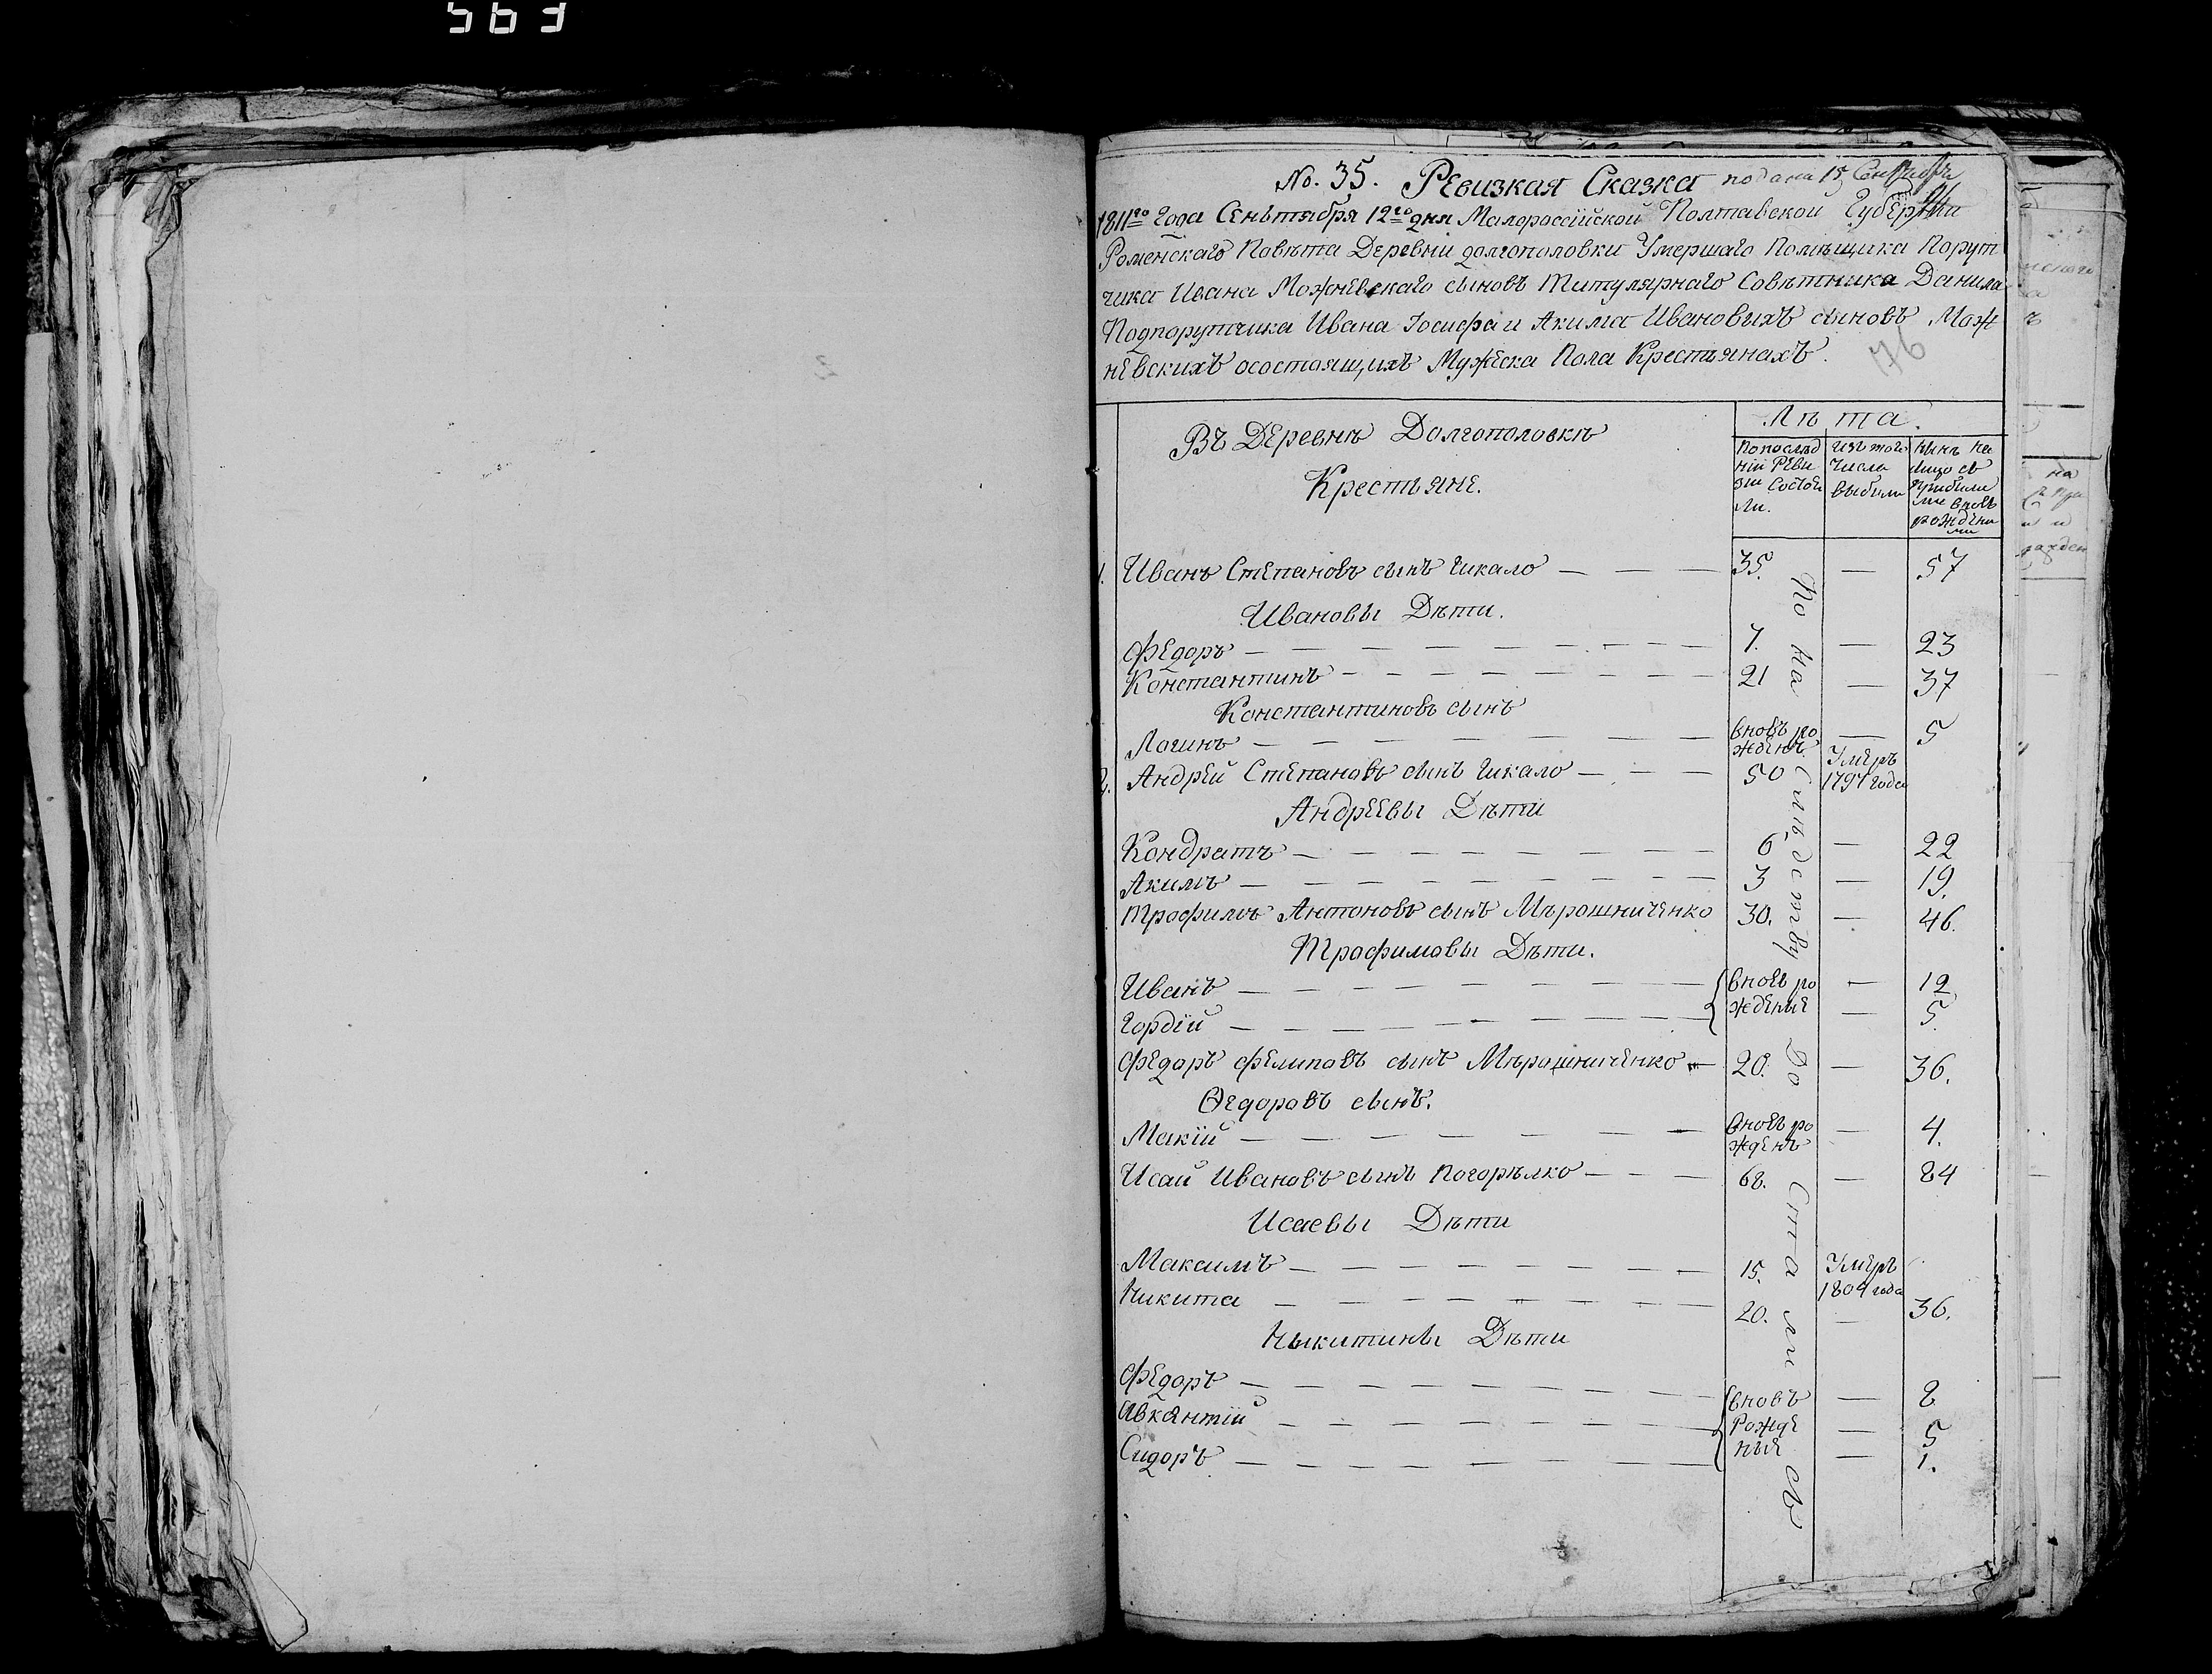 563
No. 35. Ревизкая Сказка подана 15 Сентября
1811го Года Сеньтября 12го дня Малороссійской Полтавской Губерніи
Роменскаго Повѣта Деревни долгополовки Умершаго Помѣщика Порут
чика ИванаМожневскаго сыновъ Титулярнаго Совѣтника Данила
Подпорутчика Ивана Іосифа и Акима Ивановыхъ сыновъ Мож
невскихъ осостоящихъ Мужеска Пола Крестьянахъ.
76
Въ Деревнѣ Долгополовкѣ
Крестьяне.
Лѣта.
Попослѣд
ній Реви
зіи Состоя
ли.
изъ того
Числа
выбыли
нынѣ на
лицо съ
прибыли
ми вновь
рождены
ми
1. Иванъ Степановъ сынъ Чикало — — — 35. — 57
Ивановы Дѣти.
Федоръ — 7. — 23
Константинъ — 21 — 37
Константиновъ сынъ
Логинъ — вновь ро
жденъ — 5
2. Андрей Степановъ сынъ Чикало — — — 50 Умеръ
1797 года
Андреевы Дѣти
Кондратъ — 6 — 22
Акимъ — 3 — 19.
Трофимъ Антоновъ сынъ Мѣрошниченко 30. — 46.
Трофимовы Дѣти.
Иванъ — вновь ро — 19
Гордій — жденые — 5.
Федоръ Фелиповъ сынъ Мѣрошниченко — 20. — 36.
Ѳедоровъ сынъ.
Макій — вновь ро
жденъ — 4.
Исай Ивановъ сынъ Погорѣлко — — — 68. — 84
Исаевы Дѣти
Максимъ — 15. Умеръ
1809 года
Никита — 20. — 36.
Ныкитины Дѣти
Федоръ — вновь — 8
Авкентій — рожде — 5
Сидоръ — ные — 1.
По На Слѣдству До Стались